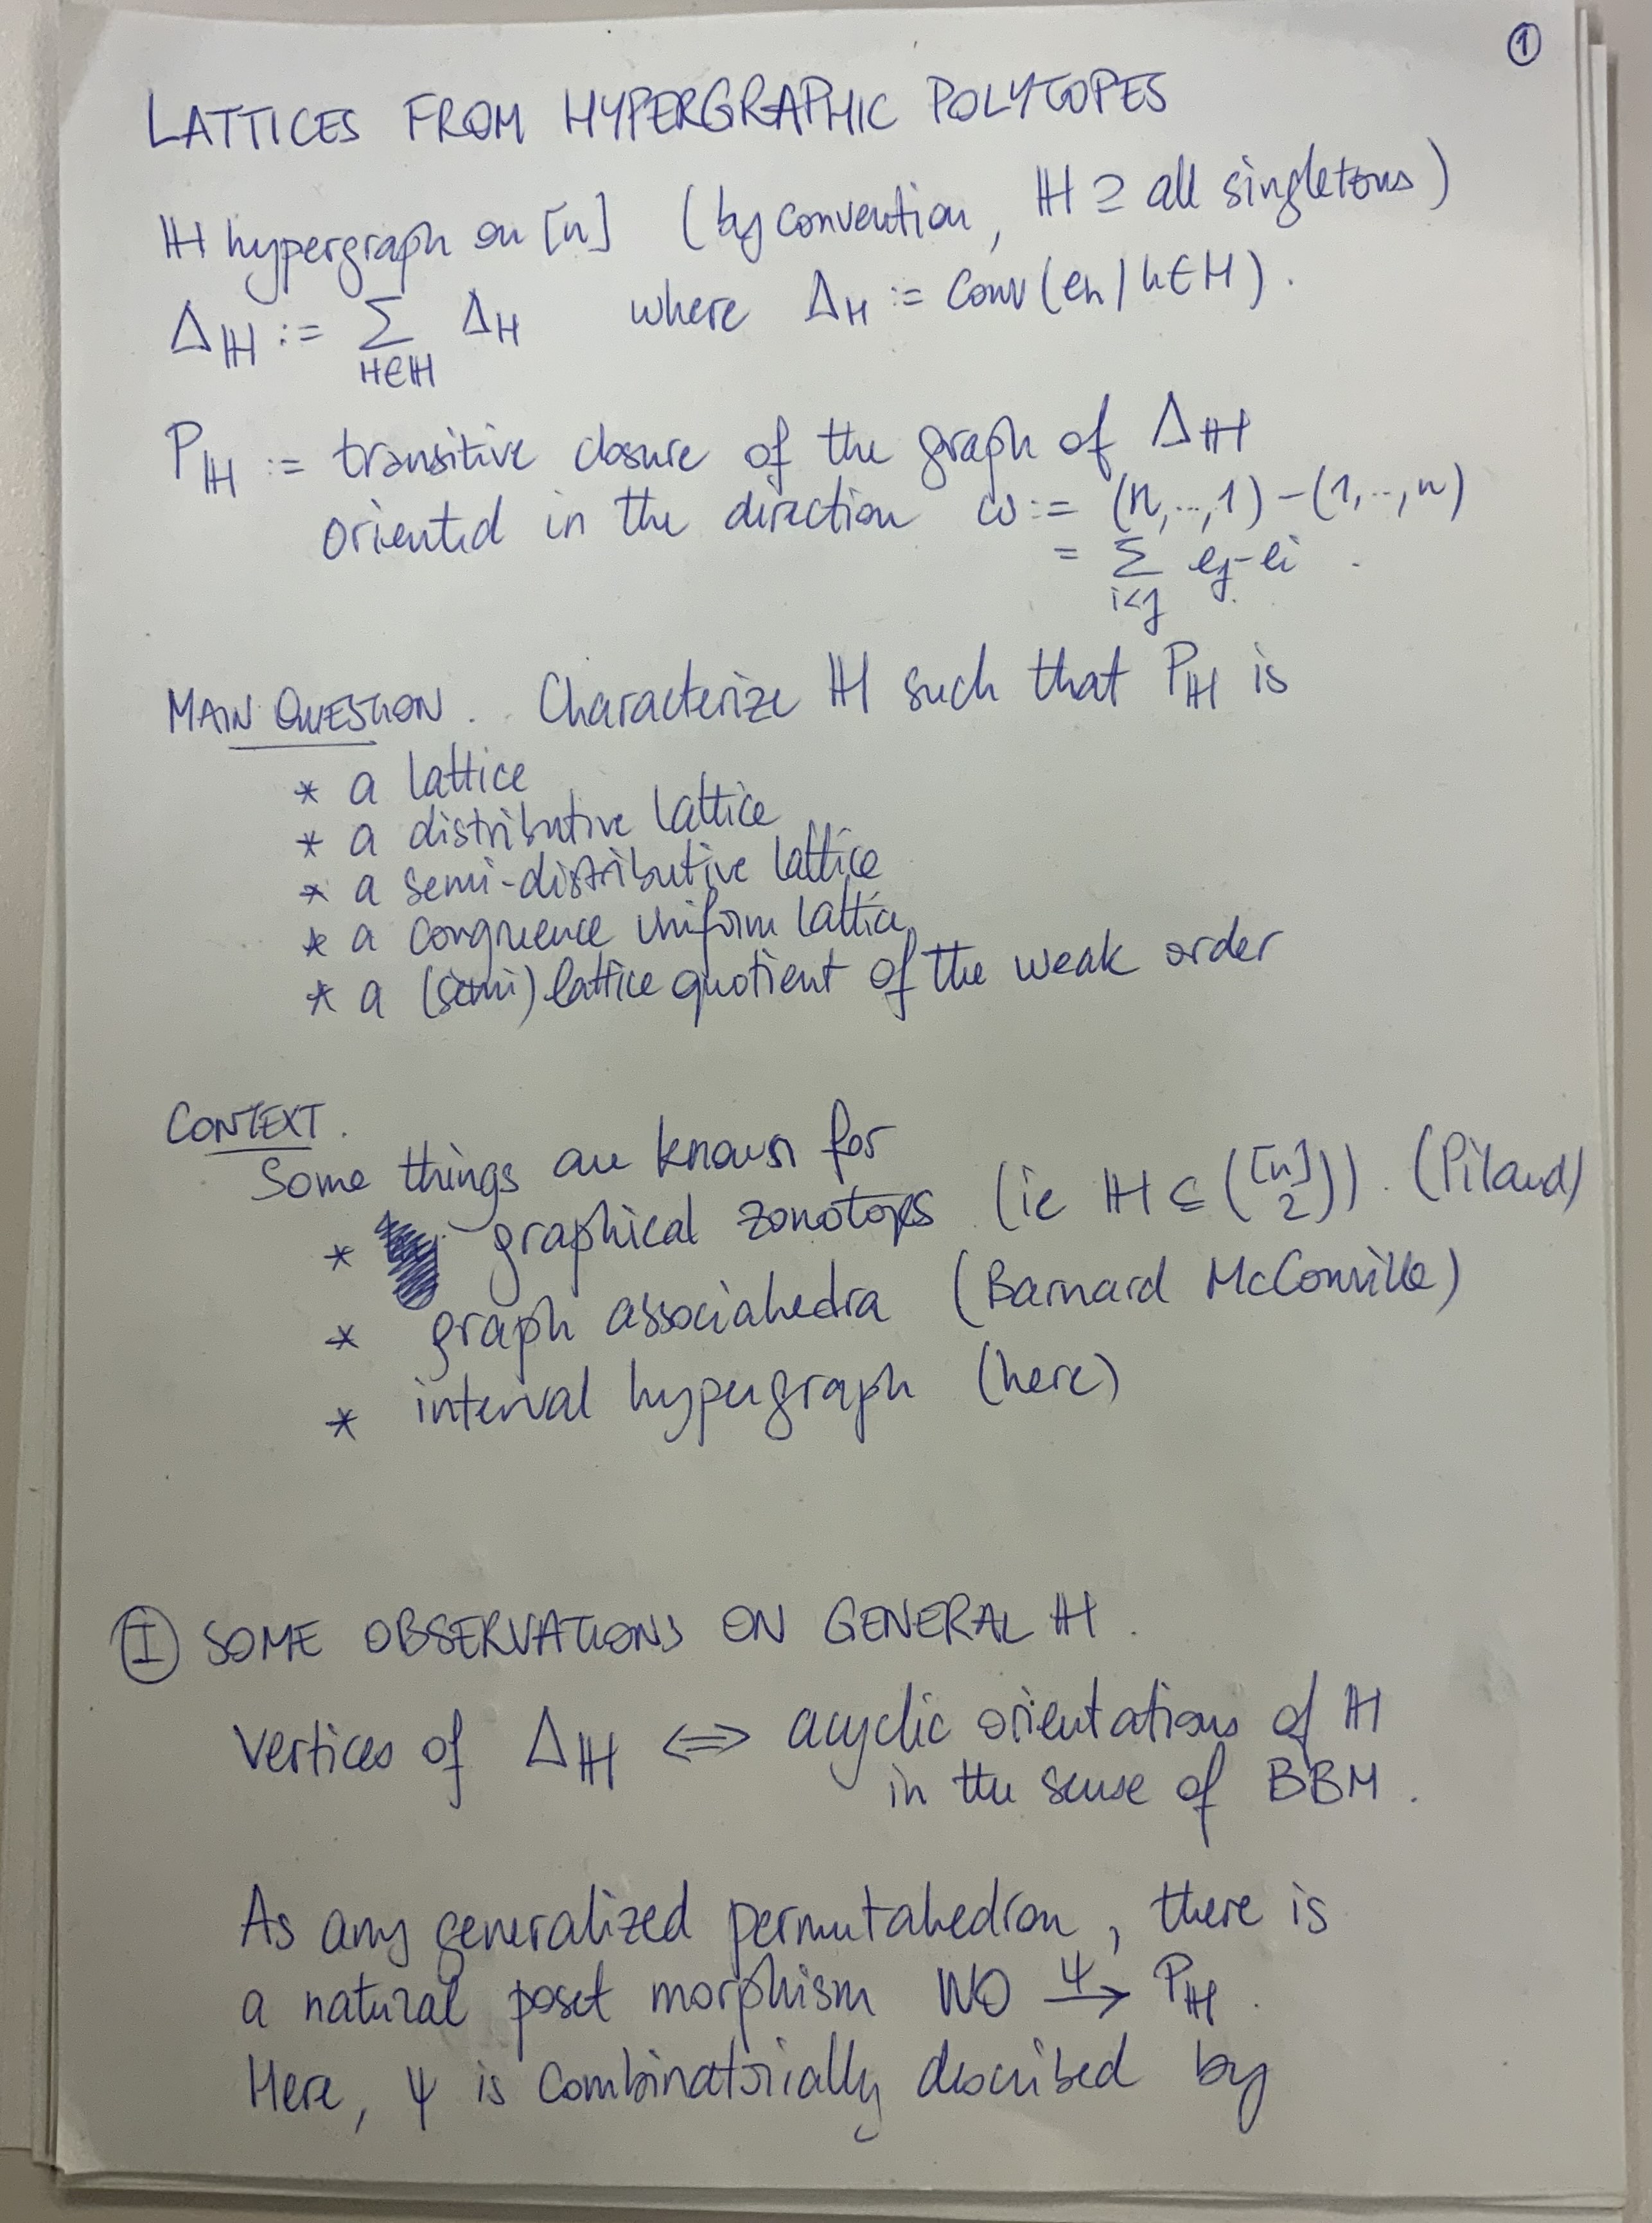 ①
LATTICES FROM HYPERGRAPHIC POLYTOPES
ℍ hypergraph on [n] (by convention, ℍ ⊇ all singletons)
Δ_ℍ := Σ_{H∈ℍ} Δ_H where Δ_H := Conv(e_h | h∈H).
P_ℍ := transitive closure of the graph of Δ_ℍ
oriented in the direction ω := (n,..,1) - (1,..,n)
= Σ_{i<j} e_j - e_i .
MAIN QUESTION. Characterize ℍ such that P_ℍ is
* a lattice
* a distributive lattice
* a semi-distributive lattice
* a congruence uniform lattice
* a (semi) lattice quotient of the weak order
CONTEXT.
Some things are known for
* graphical zonotopes (ie ℍ ⊆ ([n] 2)). (Pilaud)
* graph associahedra (Barnard McConville)
* interval hypergraph (here)
Ⓘ SOME OBSERVATIONS ON GENERAL ℍ.
Vertices of Δ_ℍ ⟺ acyclic orientations of ℍ
in the sense of BBM.
As any generalized permutahedron, there is
a natural poset morphism WO →^Ψ P_ℍ.
Here, Ψ is combinatorially described by